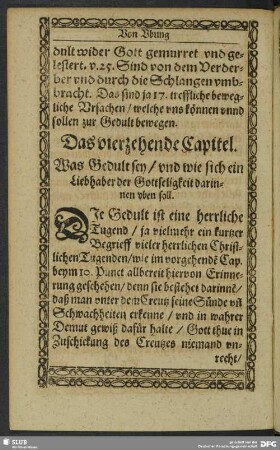 Von Vbung
dult wider Gott gemurret vnd ge-
lestert. v. 25. Sind von dem Verder-
ber vnd durch die Schlangen vmb-
bracht. Das sind ja 17. treffliche beweg-
liche Vrsachen / welche vns können vnnd
sollen zur Gedult bewegen.
Das vierzehende Capitel.
Was Gedult sey / vnd wie sich ein
Liebhaber der Gottseligkeit darin-
nen vben soll.
DJe Gedult ist eine herrliche
Tugend / ja vielmehr ein kurtzer
Begrieff vieler herrlichen Christ-
lichen Tugenden / wie im vorgehendē Cap.
beym 10. Punct allbereit hiervon Erinne-
rung geschehen / denn sie bestehet darinnē /
daß man vnter dem Creutz seine Sünde vñ
Schwachheiten erkenne / vnd in wahrer
Demut gewiß dafür halte / Gott thue in
Zuschickung des Creutzes niemand vn-
recht /
SLUB